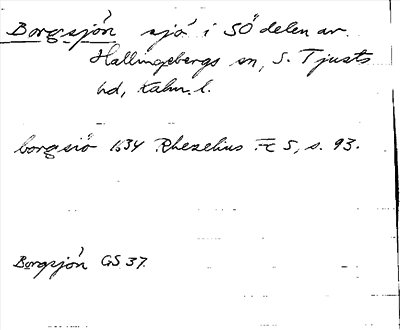 Borgsjön sjö i SÖ delen av
Hallingebergs sn, S. Tjusts
hd, Kalm. l.
borgsiö 1634 Rhezelius Fc 5, s. 93.
Borgsjön GS 37.